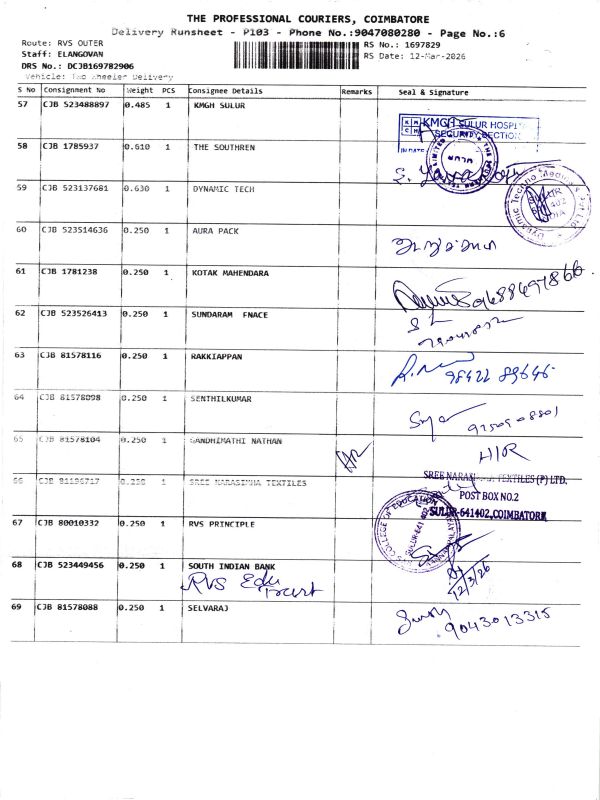 THE PROFESSIONAL COURIERS, COIMBATORE
Delivery Runsheet - P103 - Phone No.:9047080280 - Page No.:6
Route: RVS OUTER
RS No.: 1697829
Staff: ELANGOVAN
RS Date: 12-Mar-2026
DRS No.: DCJB169782906
Vehicle: Two Wheeler Delivery
S No Consignment No Weight PCS Consignee Details Remarks Seal & signature
57 CJB 523488897 0.485 1 KMGH SULUR
KMCH SULUR HOSPITAL
SECURITY SECTION
58 CJB 1785937 0.610 1 THE SOUTHREN
SULUR
59 CJB 523137681 0.630 1 DYNAMIC TECH
60 CJB 523514636 0.250 1 AURA PACK
61 CJB 1781238 0.250 1 KOTAK MAHENDARA
9688697866
62 CJB 523526413 0.250 1 SUNDARAM FNACE
63 CJB 81578116 0.250 1 RAKKIAPPAN
98422 89646
64 CJB 81578098 0.250 1 SENTHILKUMAR
65 CJB 81578104 0.250 1 GANDHIMATHI NATHAN
H/R
66 CJB 81196717 0.250 1 SREE NARASIMHA TEXTILES
SREE NARASIMHA TEXTILES (P) LTD.
POST BOX NO.2
SULUR-641402, COIMBATORE
67 CJB 80010332 0.250 1 RVS PRINCIPLE
COLLEGE OF EDUCATION
SULUR-641
68 CJB 523449456 0.250 1 SOUTH INDIAN BANK
RVS Edu Trust
12/3/26
69 CJB 81578088 0.250 1 SELVARAJ
9043013315